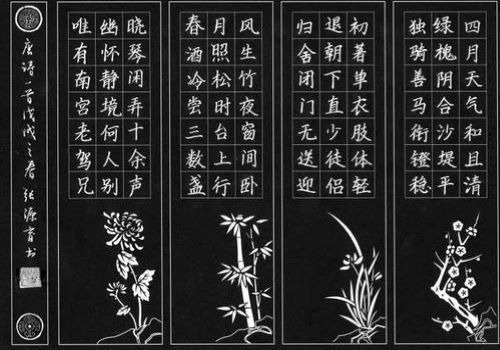 四月天气和且清
绿槐阴合沙堤平
独骑善马衔镫稳
初著单衣肢体轻
退朝下直少徒侣
归舍闭门无送迎
风生竹夜窗间卧
月照松时台上行
春酒冷尝三数盏
晓琴闲弄十余声
幽怀静境何人别
唯有南宫老驾兄
唐诗一首戊戌之春张源育书